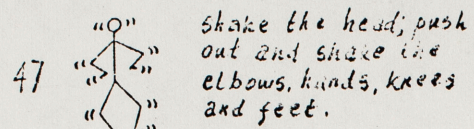 47
shake the head; push
out and shake the
elbows, hands, knees
and feet.